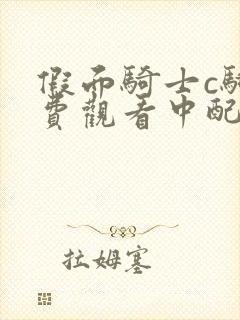 假面騎士c騎
費觀看中配
拉姆塞